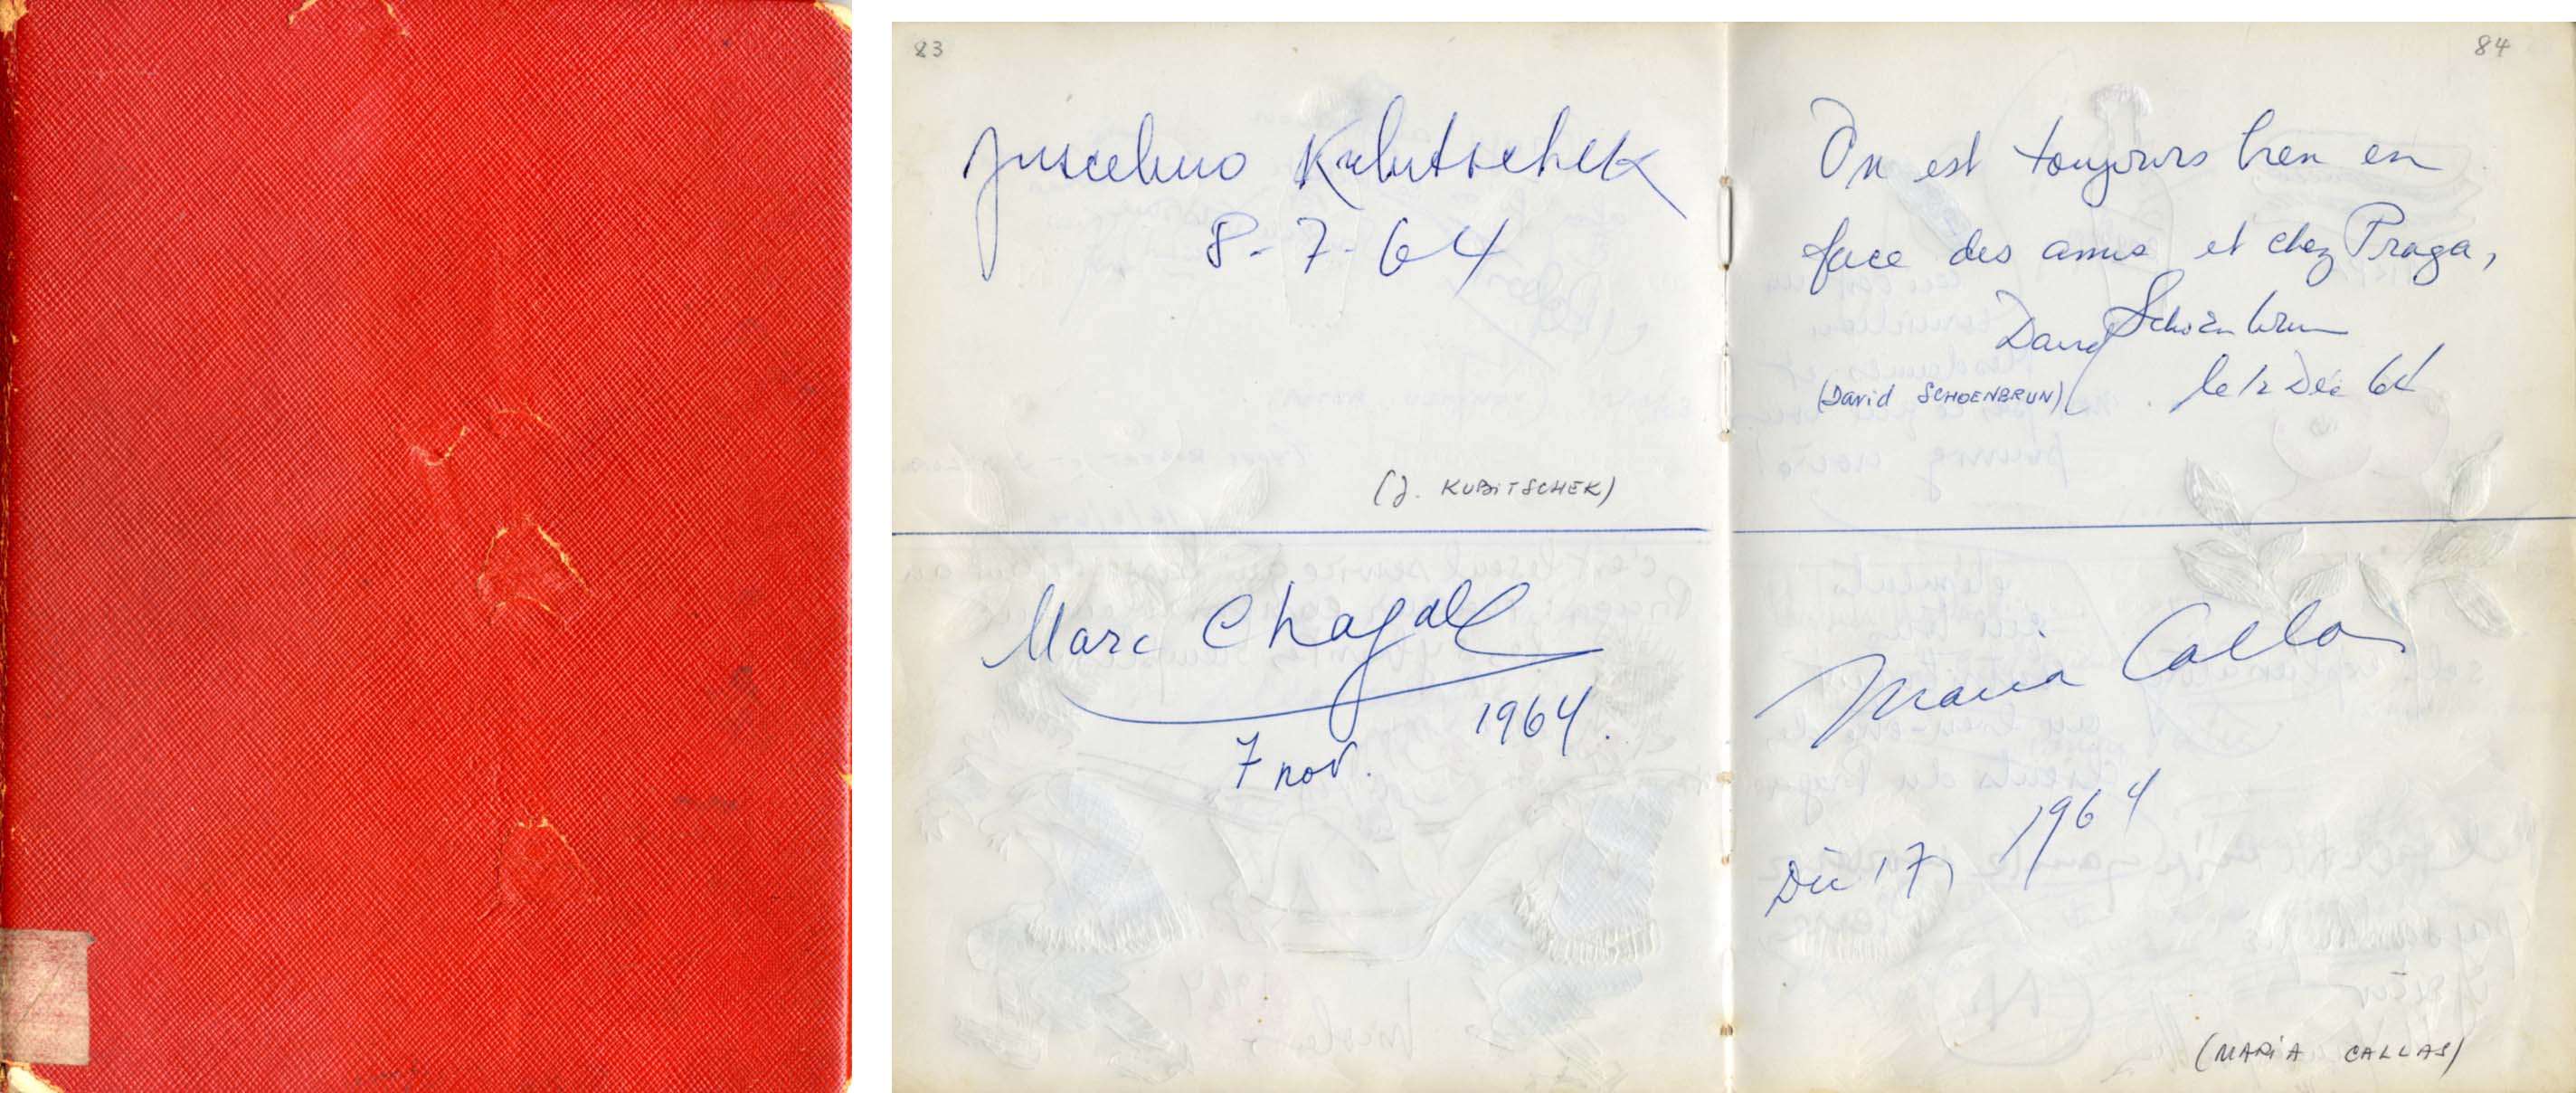 83
Juscelino Kubitschek
8-7-64
(J. KUBITSCHEK)
Marc Chagall
1964.
7 nov.
84
On est toujours bien en
face des amis et chez Praga,
David Schoenbrun
(David SCHOENBRUN)
le 12 Déc 64
Maria Callas
1964
Dec 17,
(MARIA CALLAS)